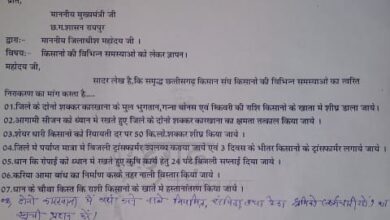 प्रति,
माननीय मुख्यमंत्री जी
छ.ग.शासन रायपुर
द्वारा:- माननीय जिलाधीश महोदय जी ।
विषय:- किसानों की विभिन्न समस्याओं को लेकर ज्ञापन।
महोदय जी,
सादर लेख है,कि समृद्ध छत्तीसगढ़ किसान संघ किसानों की विभिन्न समस्याओं का त्वरित
निराकरण का मांग करता है....
01.जिले के दोनों शक्कर कारखाना के मुल भुगतान,गन्ना बोनस एवं रिकवरी की राशि किसानों के खाता में शीघ्र डाला जाये।
02.आगामी सीजन को ध्यान में रखते हुए जिले के दोनों शक्कर कारखाना का क्षमता तत्काल किया जाये ।
03.शेयर धारी किसानों को रियायती दर पर 50 किलो.शक्कर शीघ्र किया जाये ।
04.जिले में पर्याप्त मात्रा में बिजली ट्रांसफार्मर उपलब्ध कराया जाये एवं 3 दिवस के भीतर किसानों के ट्रांसफार्मर लगाये जाये ।
05.धान कि रोपाई को ध्यान में रखते हुए कृषि कार्य हेतु 24 घंटे बिजली सप्लाई दिया जाये ।
06.करिया आमा बांध का निर्माण करके नहर नाली विस्तार किया जाये ।
07.धान के चौथा किस्त कि राशी किसानों के खाते में हस्तानांतरण किया जाये ।
08. दोनों कारखानों में
प्रदान करें।